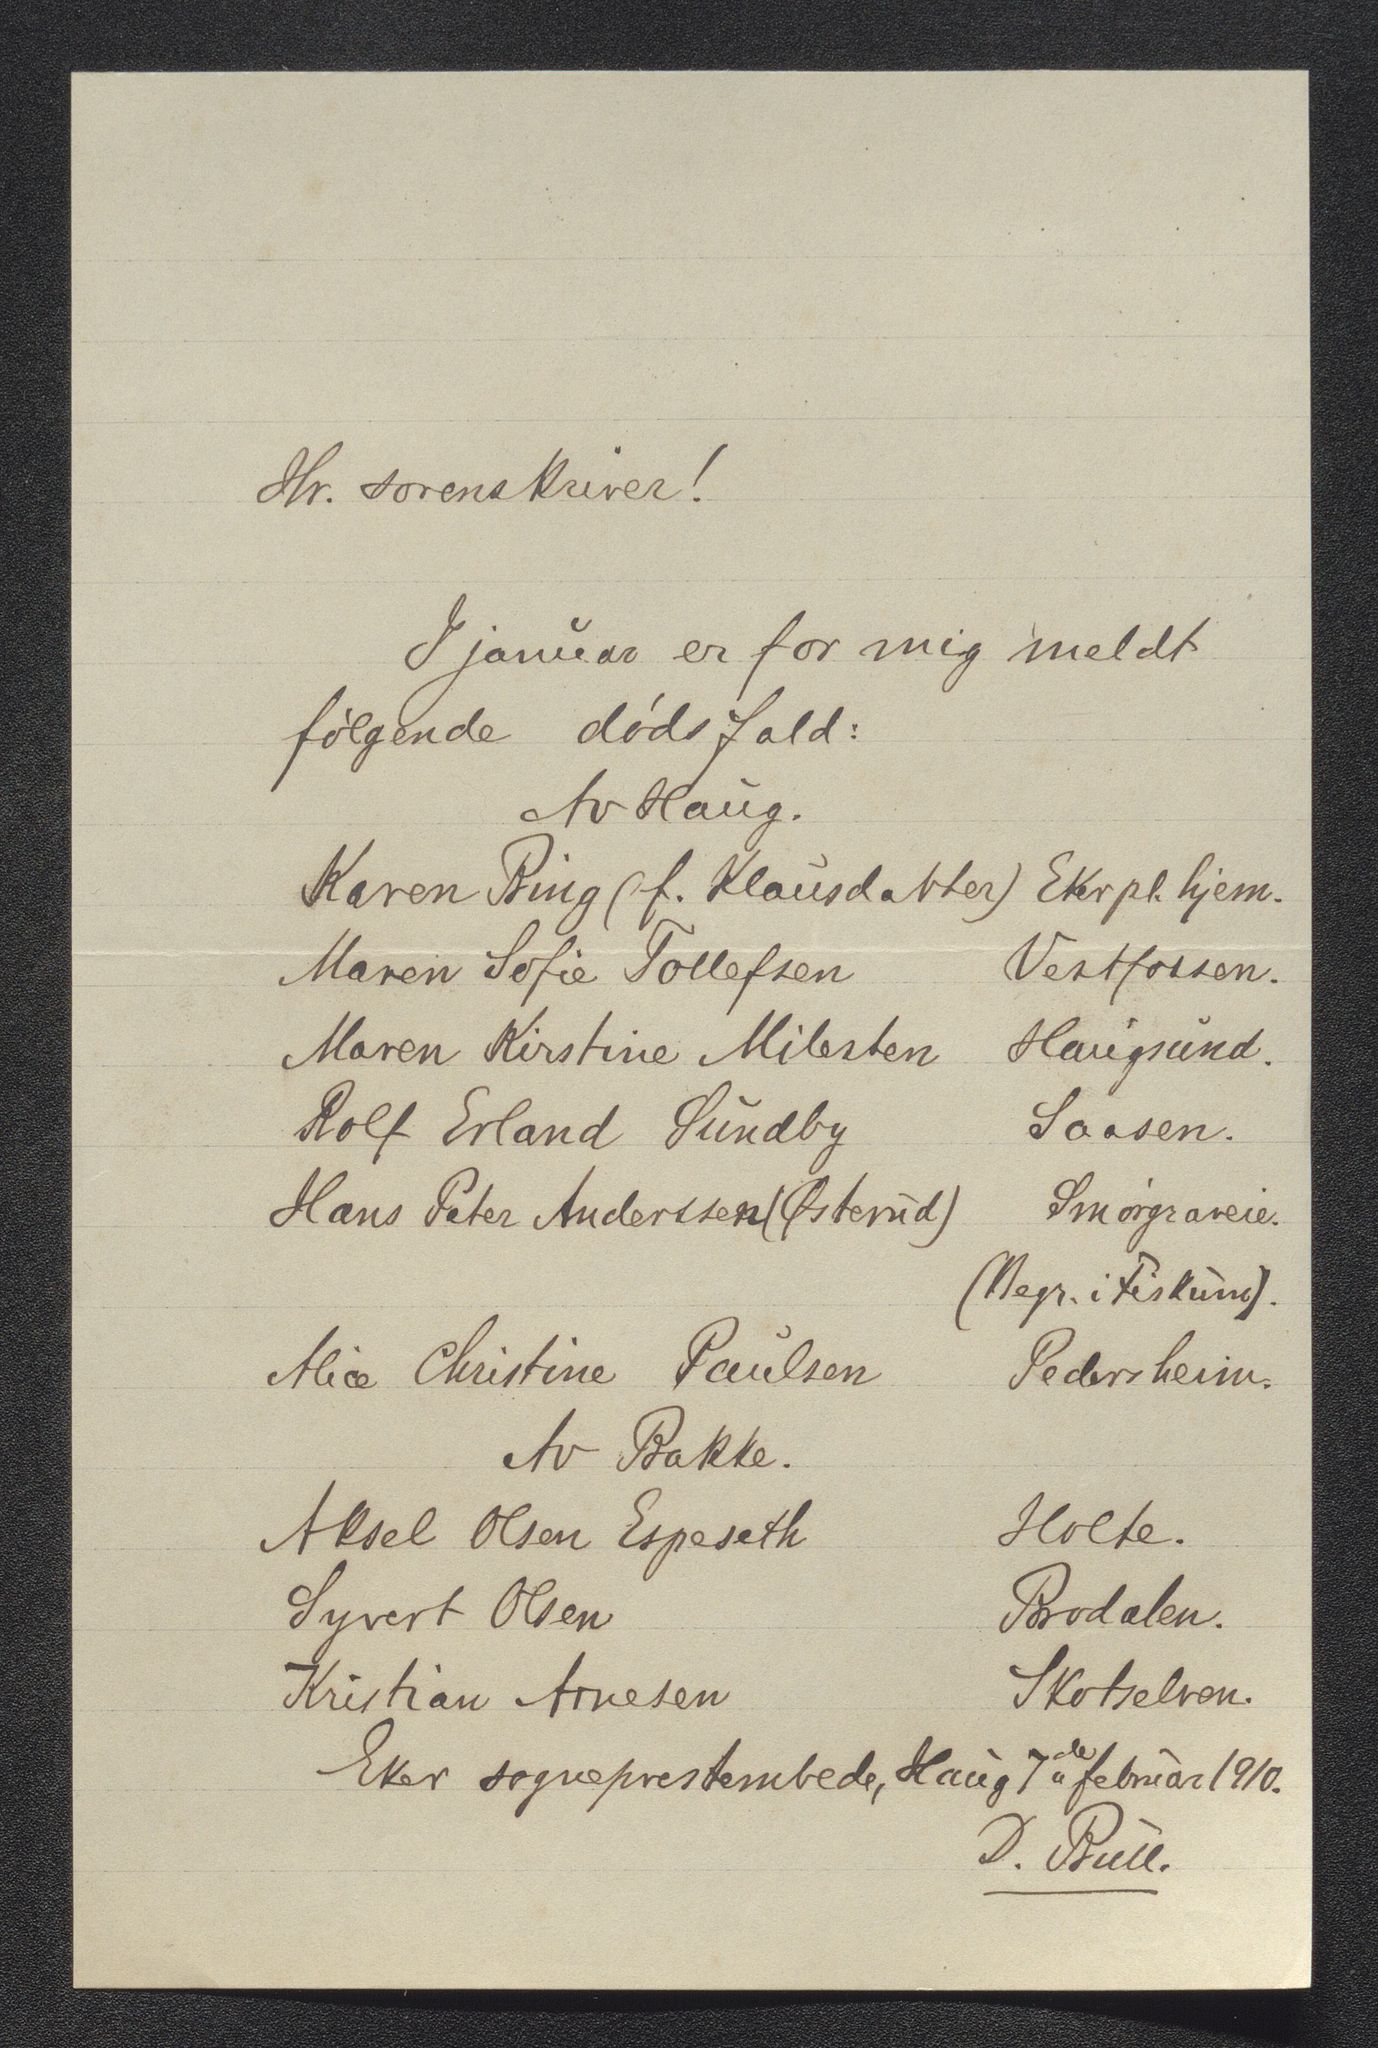 Hr. sorenskriver!
I januar er for mig meldt
følgende dødsfald:
Av Haug.
Karen Bing (f. Klausdatter) Eker pl. hjem.
Maren Sofie Tollefsen Vestfossen.
Maren Kirstine Milesten Haugsund.
Rolf Erland Sundby Saasen.
Hans Peter Anderssen (Østerud) Smørgraveie.
(Begr. i Fiskum).
Alice Christine Paulsen Pedersheim.
Av Bakke.
Aksel Olsen Espeseth Holte.
Syvert Olsen Brodalen.
Kristian Arnesen Skotselven.
Eker sogneprestembede, Haug 7de februar 1910.
D. Bull.